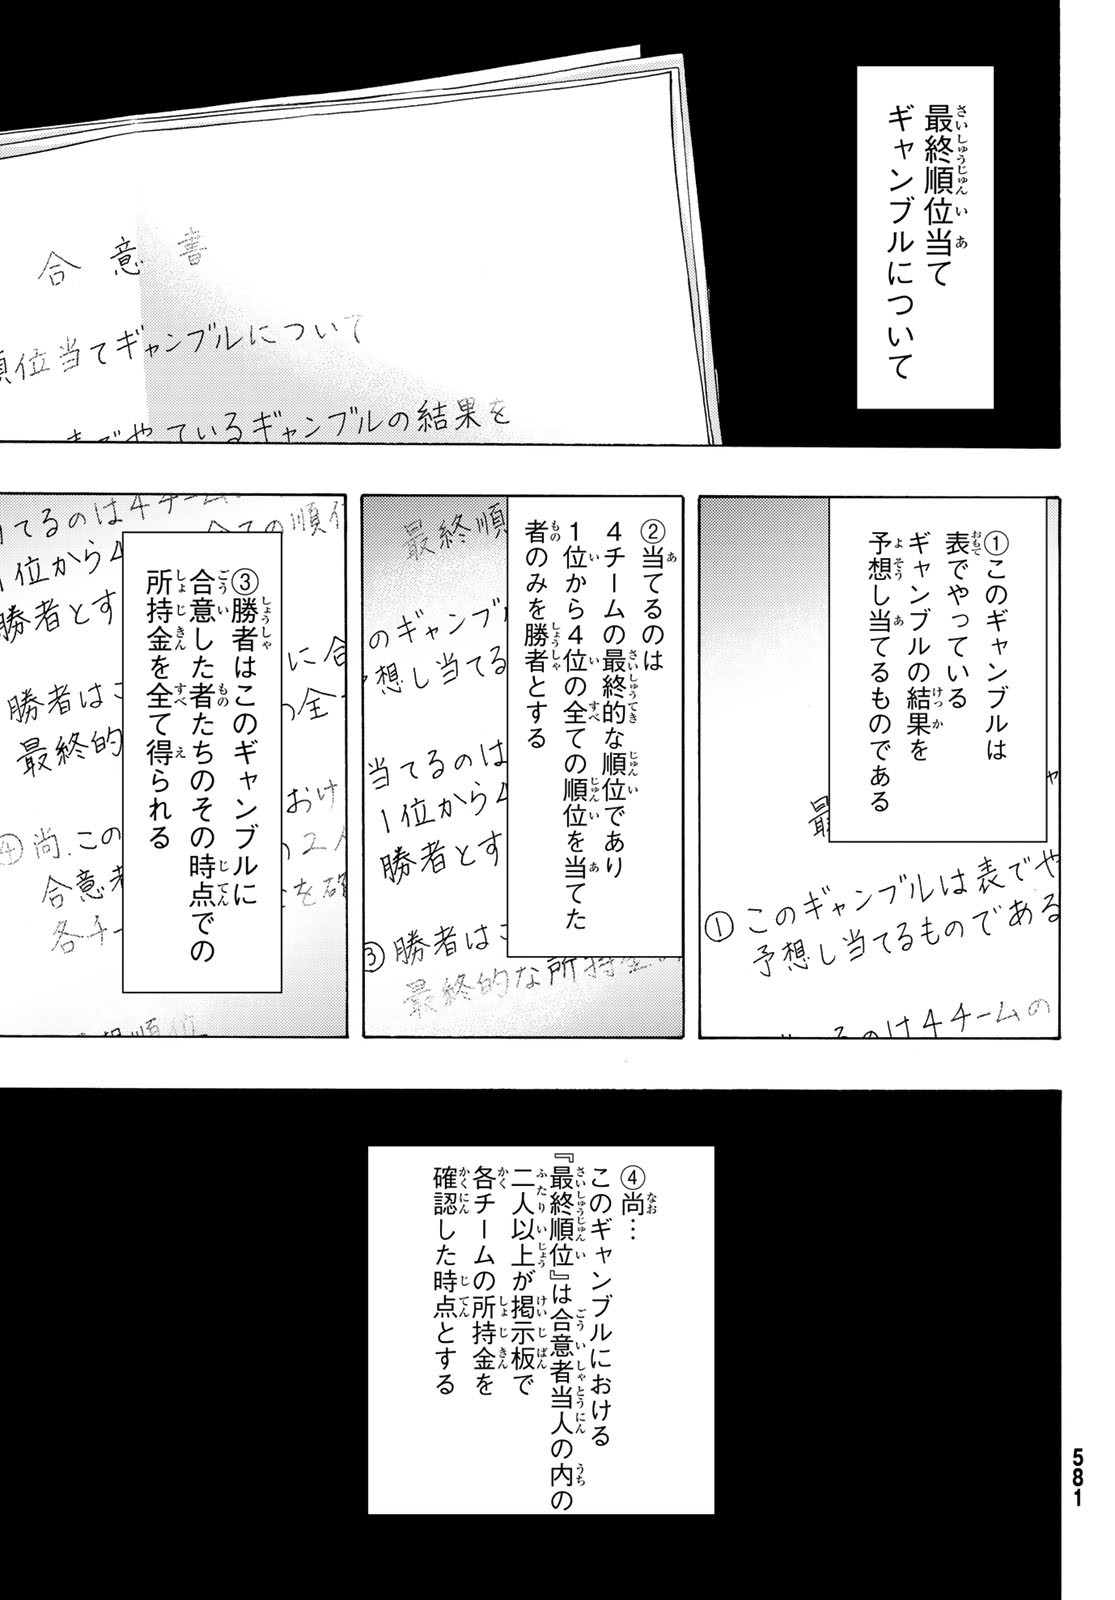 最終順位当て
ギャンブルについて
合意書
順位当てギャンブルについて
表でやっているギャンブルの結果を
①このギャンブルは
表でやっている
ギャンブルの結果を
予想し当てるものである
①このギャンブルは表でや
予想し当てるものである
るのは4チームの
②当てるのは
4チームの最終的な順位であり
1位から4位の全ての順位を当てた
者のみを勝者とする
最終順
のギャンブ
予想し当てる
当てるのは
1位から4
勝者とす
③勝者はこ
最終的な所持金
③勝者はこのギャンブルに
合意した者たちのその時点での
所持金を全て得られる
当てるのは4チーム
全ての順位
1位から4
勝者とす
に合
勝者はこ
の全
最終的
おけ
④尚、この
の2人
合意者
を確
各チー
順位
④尚…
このギャンブルにおける
『最終順位』は合意者当人の内の
二人以上が掲示板で
各チームの所持金を
確認した時点とする
581